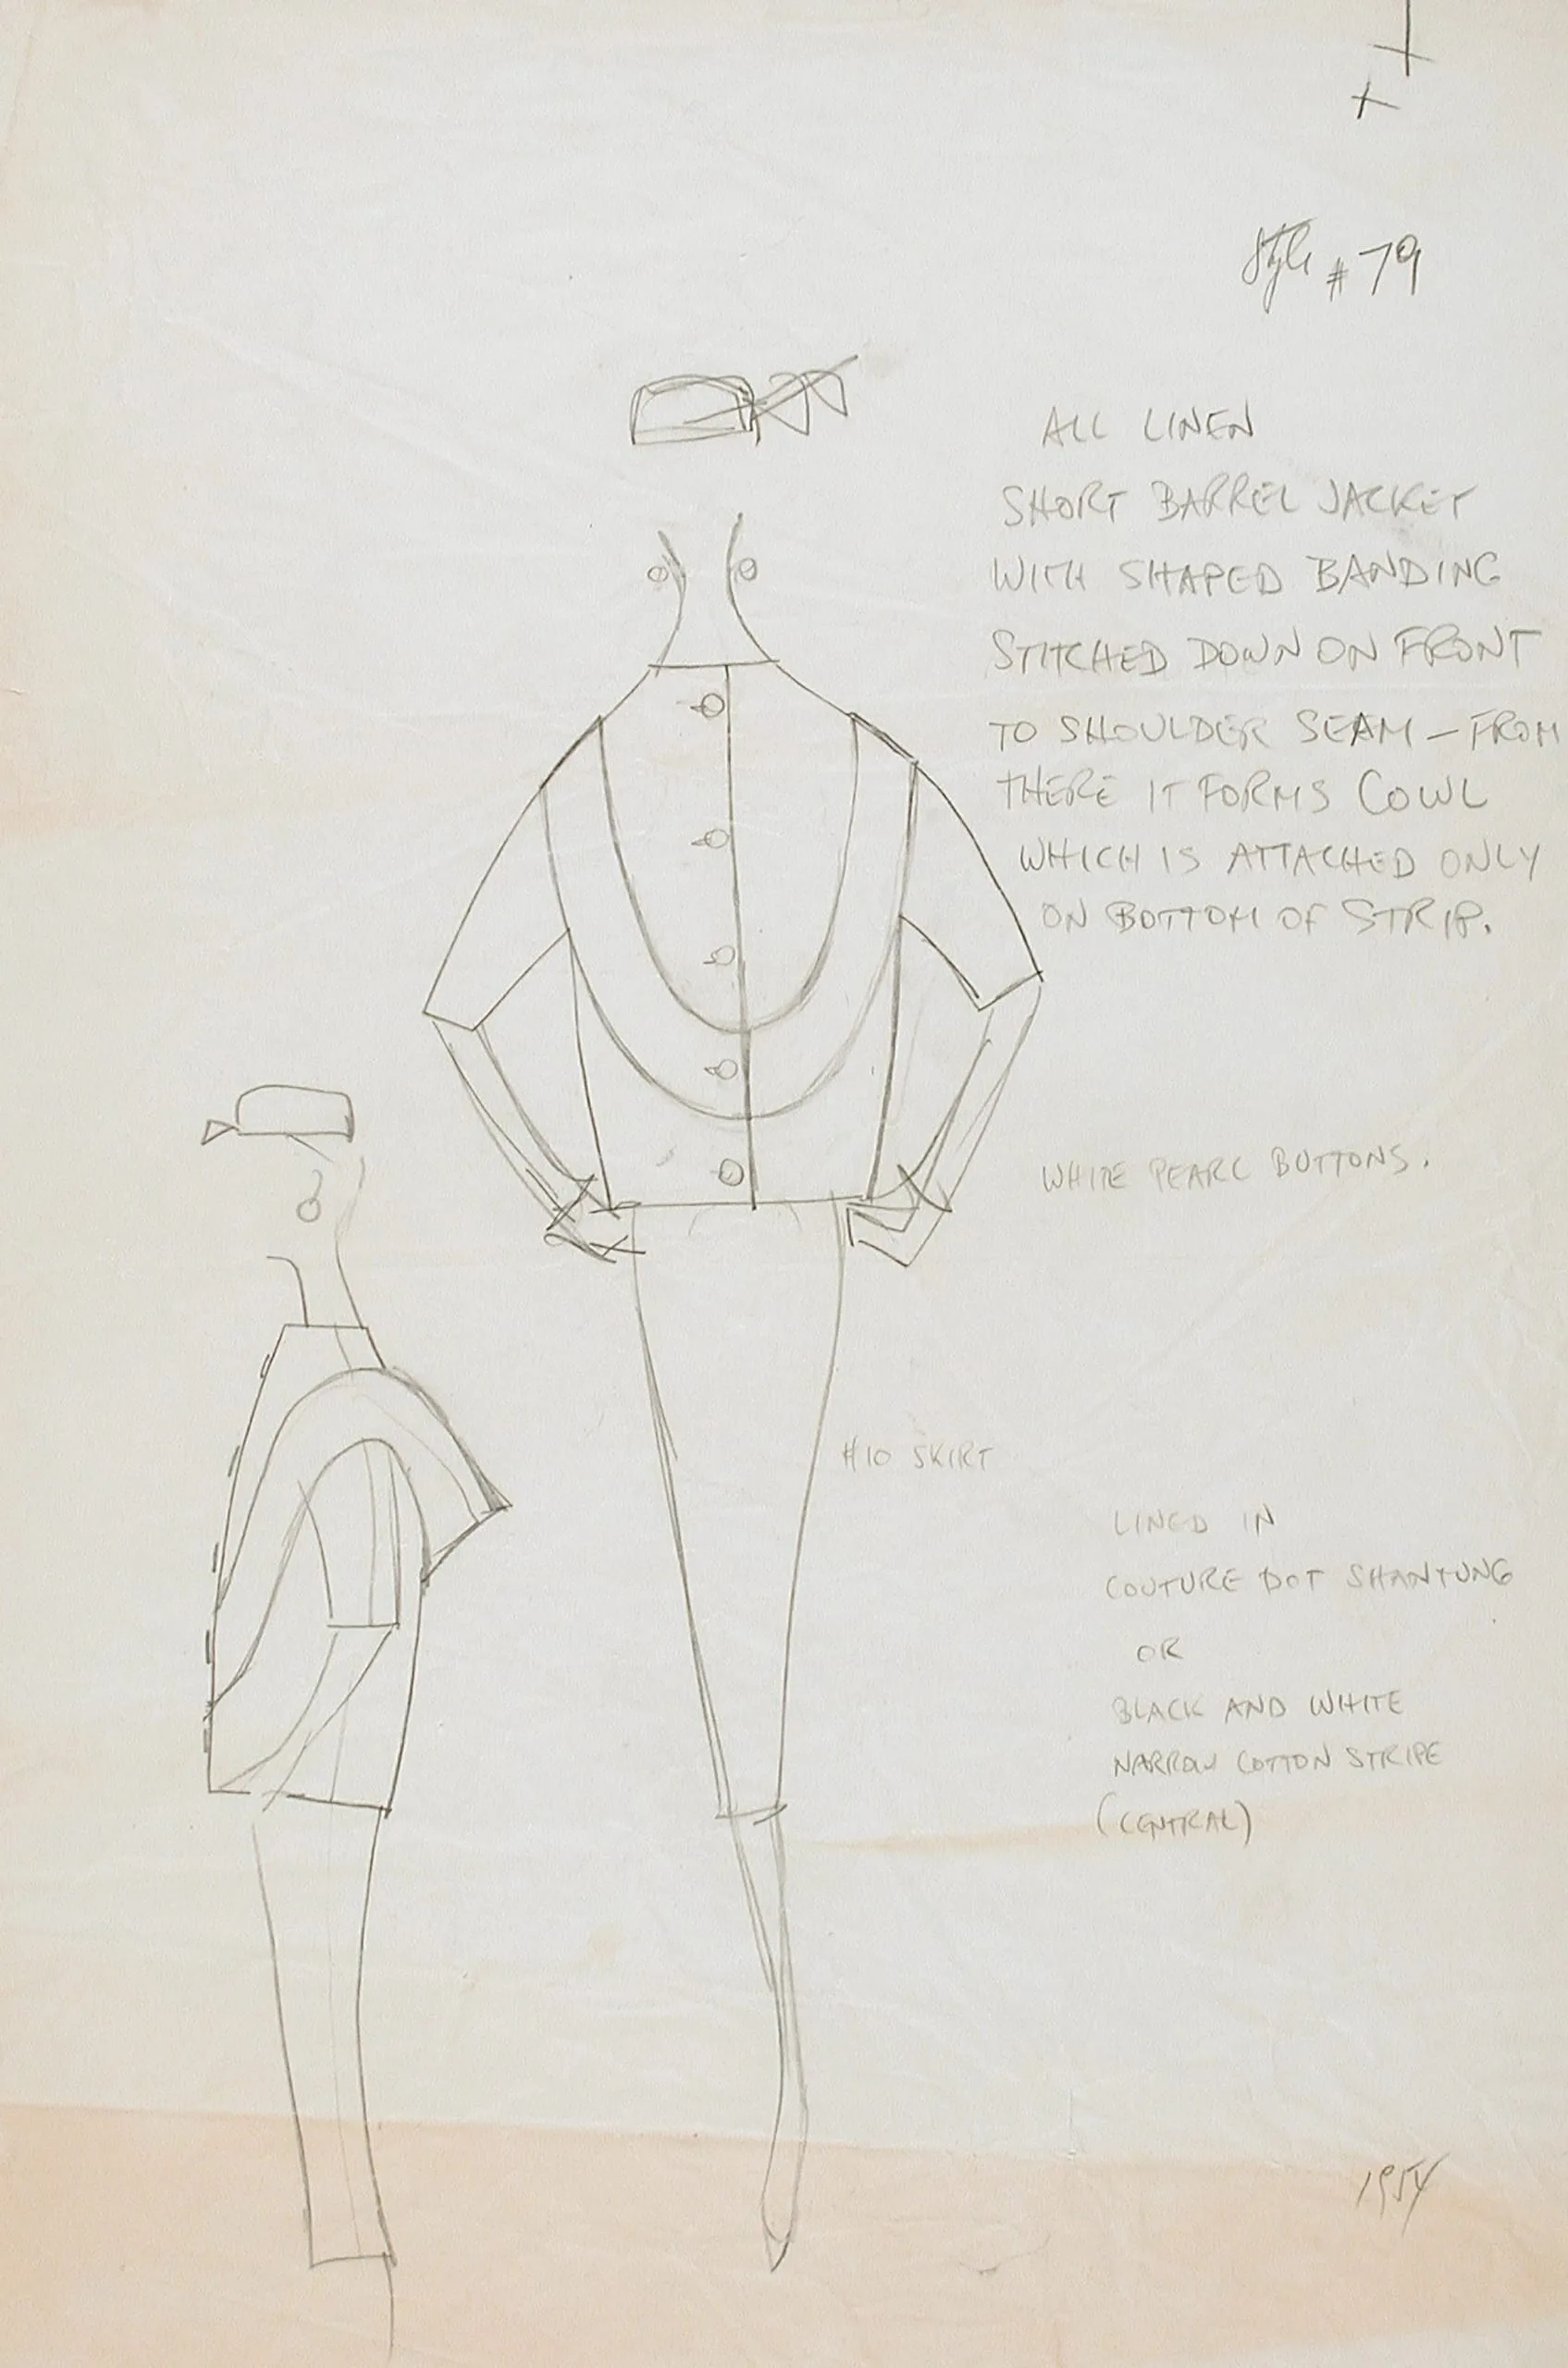 Style #79
ALL LINEN
SHORT BARREL JACKET
WITH SHAPED BANDING
STITCHED DOWN ON FRONT
TO SHOULDER SEAM — FROM
THERE IT FORMS COWL
WHICH IS ATTACHED ONLY
ON BOTTOM OF STRIP.
WHITE PEARL BUTTONS.
#10 SKIRT
LINED IN
COUTURE DOT SHANTUNG
OR
BLACK AND WHITE
NARROW COTTON STRIPE
(CENTRAL)
1954